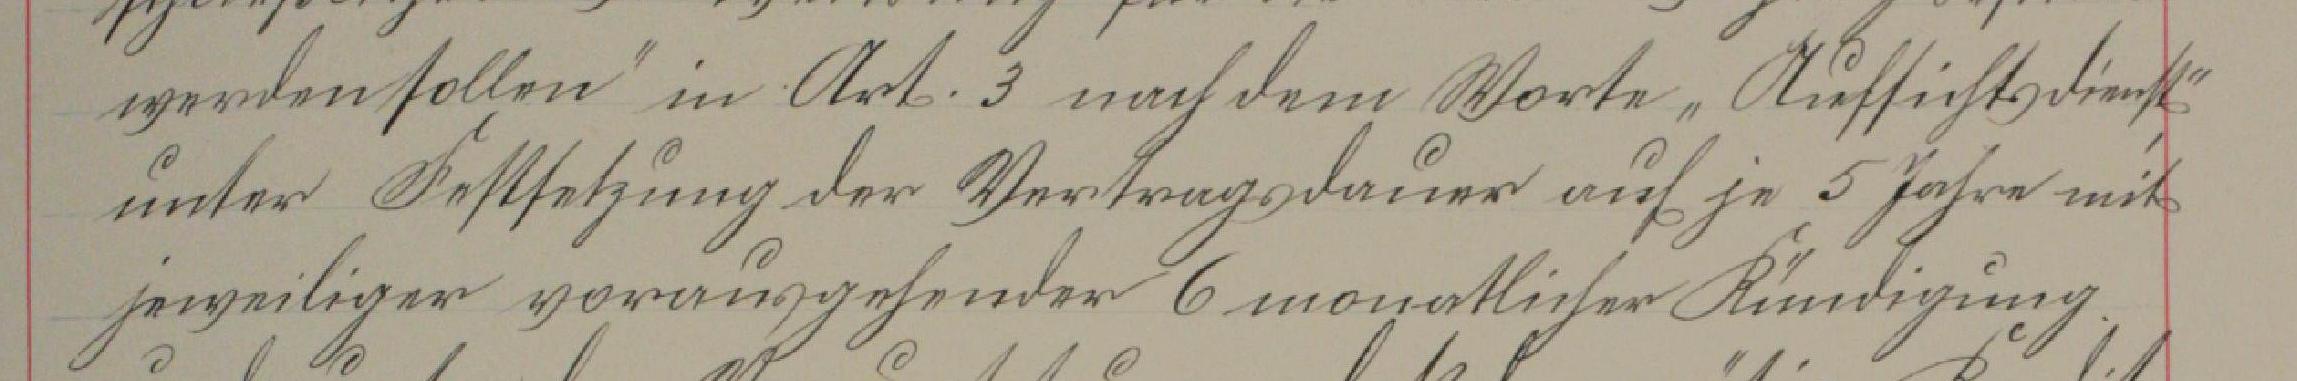 werden sollen" in Art. 3 nach dem Worte „Aufsichtsdienst"
unter Festsetzung der Vertragsdauer auf je 5 Jahre mit
jeweiliger vorausgehender 6 monatlicher Kündigung.